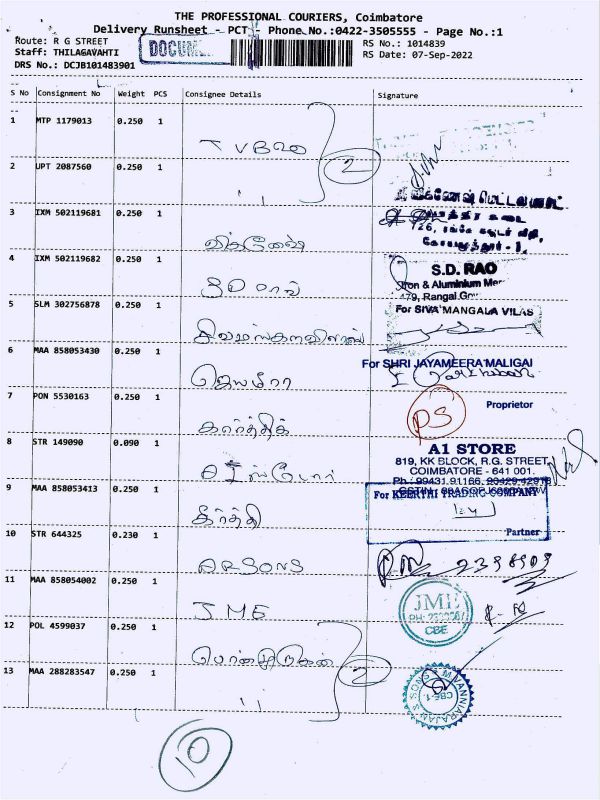 THE PROFESSIONAL COURIERS, Coimbatore
Delivery Runsheet - PCT - Phone No.:0422-3505555 - Page No.:1
Route: R G STREET
RS No.: 1014839
Staff: THILAGAVAHTI
RS Date: 07-Sep-2022
DRS No.: DCJB101483901
DOCUME
S No Consignment No Weight PCS Consignee Details Signature
1 MTP 1179013 0.250 1
TVB20
2 UPT 2087560 0.250 1
2
3 IXM 502119681 0.250 1
விக்னேஷ்
726,
4 IXM 502119682 0.250 1
SD ராவ்
S.D. RAO
Iron & Aluminium Mer
479, Rangai Gow
5 SLM 302756878 0.250 1
சிவமங்களவிலாஸ்
For SIVA MANGALA VILAS
6 MAA 858053430 0.250 1
ஜெயமீரா
For SHRI JAYAMEERA MALIGAI
Proprietor
7 PON 5530163 0.250 1
கார்த்திக்
PS
8 STR 149090 0.090 1
A1 STORE
819, KK BLOCK, R.G. STREET,
COIMBATORE - 641 001.
Ph : 99431 91166,
9 MAA 858053413 0.230 1
கீர்த்தி
For KEERTHI TRADING COMPANY
Partner
10 STR 644325 0.230 1
ARSONS
11 MAA 858054002 0.250 1
JME
JME
CBE
12 POL 4599037 0.250 1
பொன்முருகன்
13 MAA 288283547 0.250 1
2
M. VANNIARAJAN & SONS
CBE-1
10